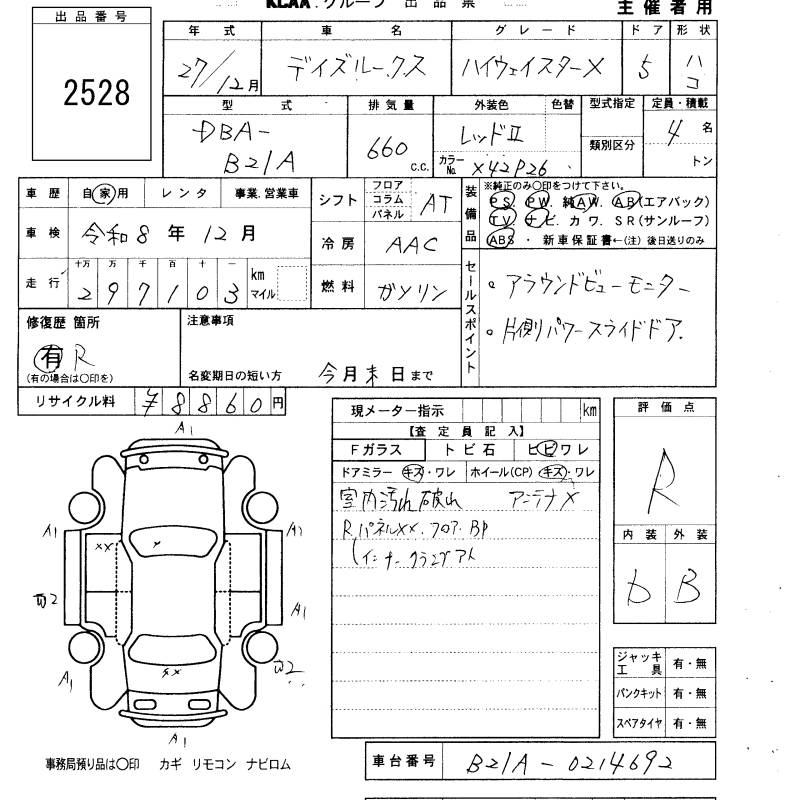 KCAA.グループ 出品票
主催者用
出品番号
2528
年式 車名 グレード ドア 形状
27/12月 デイズルークス ハイウェイスターX 5 ハコ
型式 排気量 外装色 色替 型式指定 定員・積載
DBA-B21A 660 c.c. レッドⅡ 類別区分 4名
カラーNo. X42P26 トン
車歴 自家用 レンタ 事業.営業車
車検 令和8年12月
走行 十万 万 千 百 十 一
297103 km マイル
シフト フロア コラム パネル AT
冷房 AAC
燃料 ガソリン
装備品
※純正のみ○印をつけて下さい。
PS. PW. 純AW. AB(エアバック)
TV ナビ. カワ. SR(サンルーフ)
ABS・新車保証書←(注) 後日送りのみ
セールスポイント
。アラウンドビューモニター
。片側パワースライドドア.
修復歴 箇所
有 R
(有の場合は○印を)
注意事項
名変期日の短い方 今月末日まで
リサイクル料 ¥8860円
現メーター指示 km
【査定員記入】
Fガラス トビ石 ヒビワレ
ドアミラー キズ・ワレ ホイール(CP) キズ・ワレ
室内汚れ破れ アンテナX
RパネルXX.フロアBP
評価点
R
内装 外装
D B
ジャッキ工具 有・無
パンクキット 有・無
スペアタイヤ 有・無
A1
A1
A1
XX
2
A1
A1
XX
2
A1
事務局預り品は○印 カギ リモコン ナビロム
車台番号 B21A-0214692